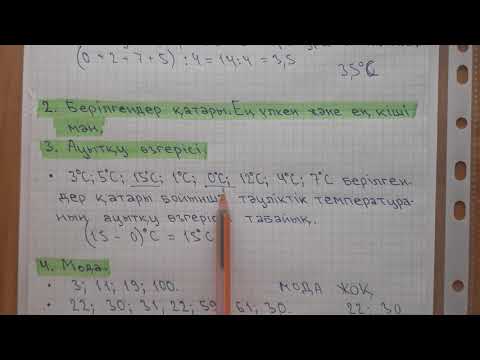 (0+2+7+5) :4 = 14:4 = 3,5
3,5°C
2. Берілгендер қатары. Ең үлкен және ең кіші
мән.
3. Ауытқу өзгерісі.
• 3°C; 5°C; 15°C; 1°C; 0°C; 12°C; 4°C; 7°C берілген-
дер қатары бойынша тәуліктік температура-
ның ауытқу өзгерісін табайық.
(15 - 0)°C = 15°C
4. Мода.
• 3; 11; 19; 100. мода жоқ
• 22; 30; 31, 22; 59 61; 30. 22; 30